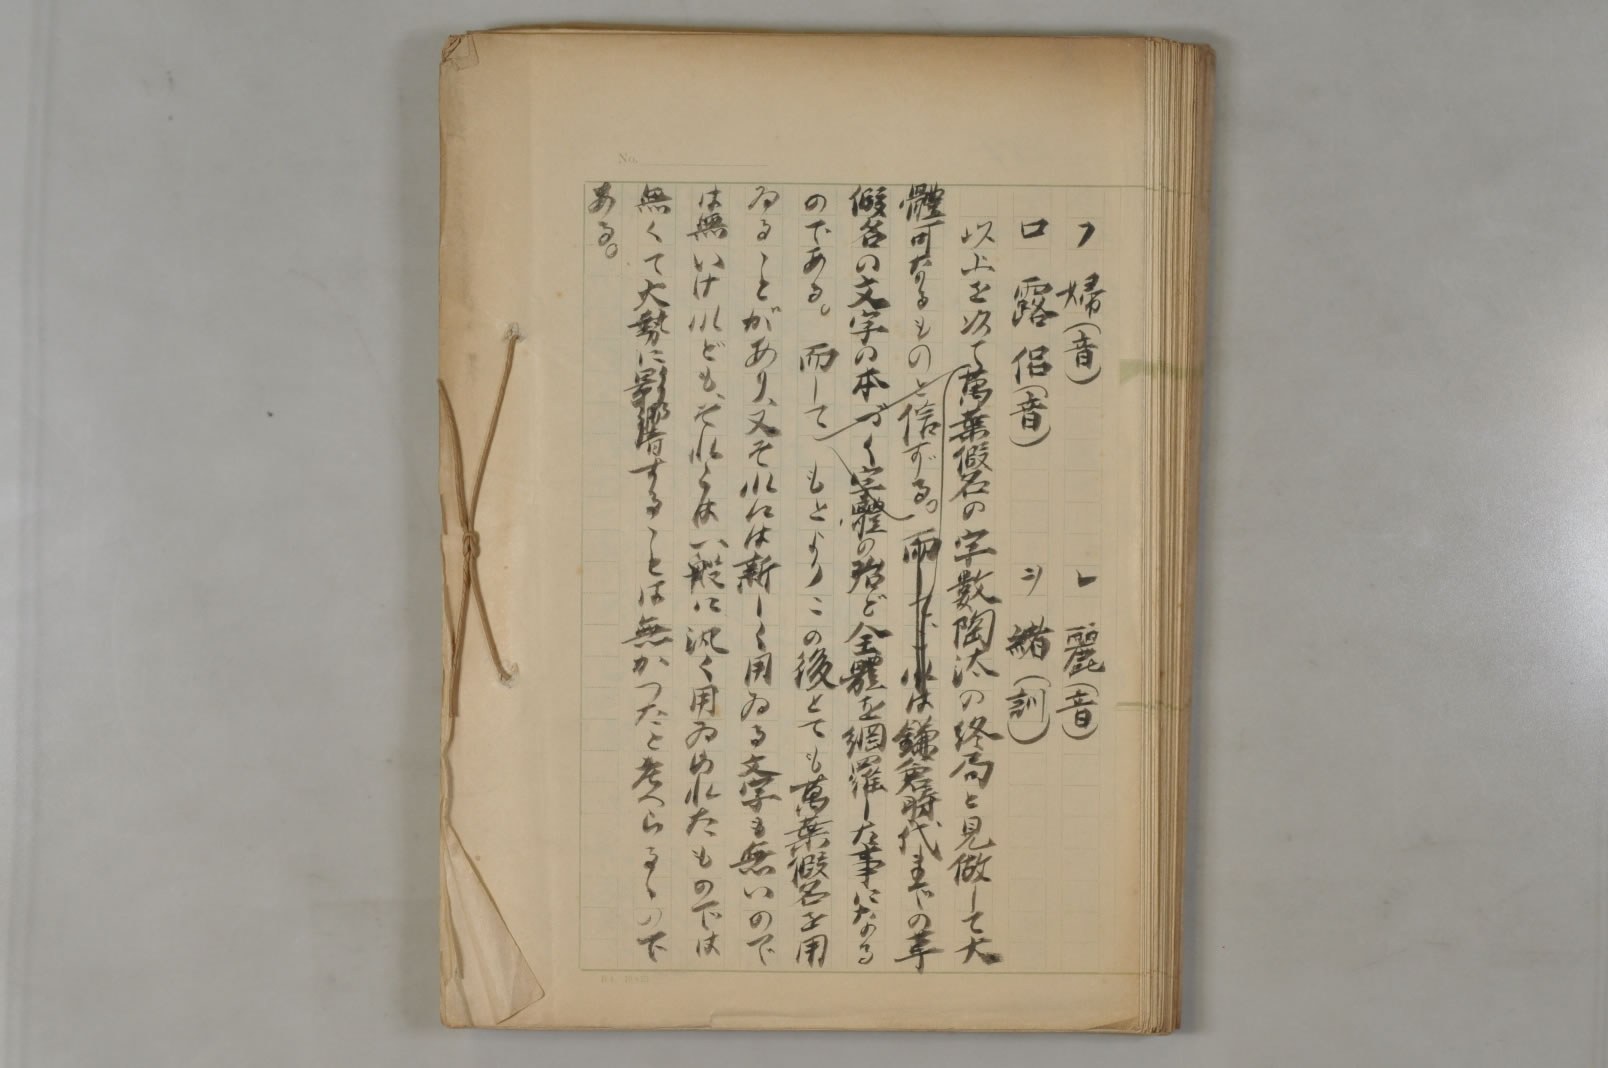 No.
フ 婦(音) レ 麗(音)
ロ 露侶(音) ヲ 緒(訓)
以上を以て萬葉假名の字數陶汰の終局と見做して大
體可なるものと信ずる。而してこれは鎌倉時代までの草
假名の文字の本づく字體の殆ど全體を網羅した事になる
のである。而してもとよりこの後とても萬葉假名を用
ゐることがあり、又それには新しく用ゐる文字も無いので
は無いけれども、それらは一般に汎く用ゐられたものでは
無くて大勢に影響することは無かつたと考へらるゝので
ある。